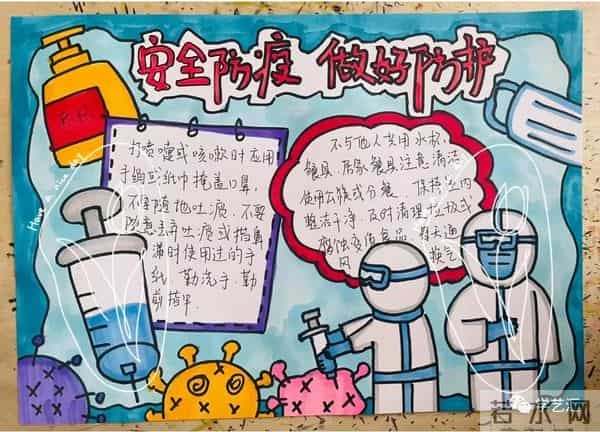 安全防疫 做好防护
打喷嚏或咳嗽时应用
手绢或纸巾掩盖口鼻,
不要随地吐痰,不要
随意丢弃吐痰或擤鼻
涕时使用过的手
纸 勤洗手、勤
剪指甲.
不与他人共用水杯,
餐具、居家餐具注意清洁
使用公筷或分餐、保持
整洁干净 及时清理垃圾或
腐蚀变质食品
通
风
换气
Have a nice day
学艺汇
若水网